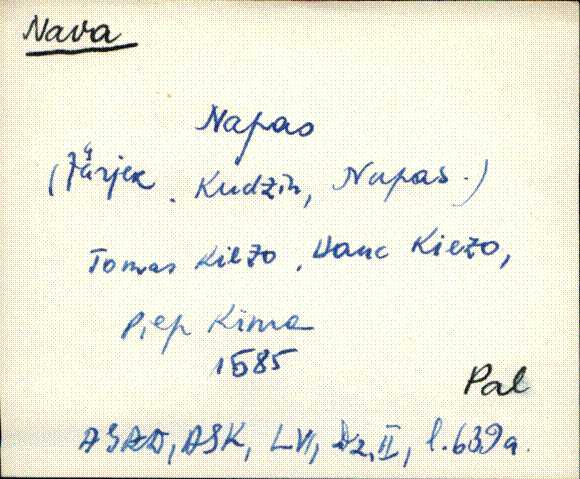 Nava
Napas
(Järjek, Kudzin, Napas.)
Tomas Kiezo, Hanc Kiezo,
Piep Kima
1585
Pal
AGAD, ASK, LVI, Dz, II, l. 639a.